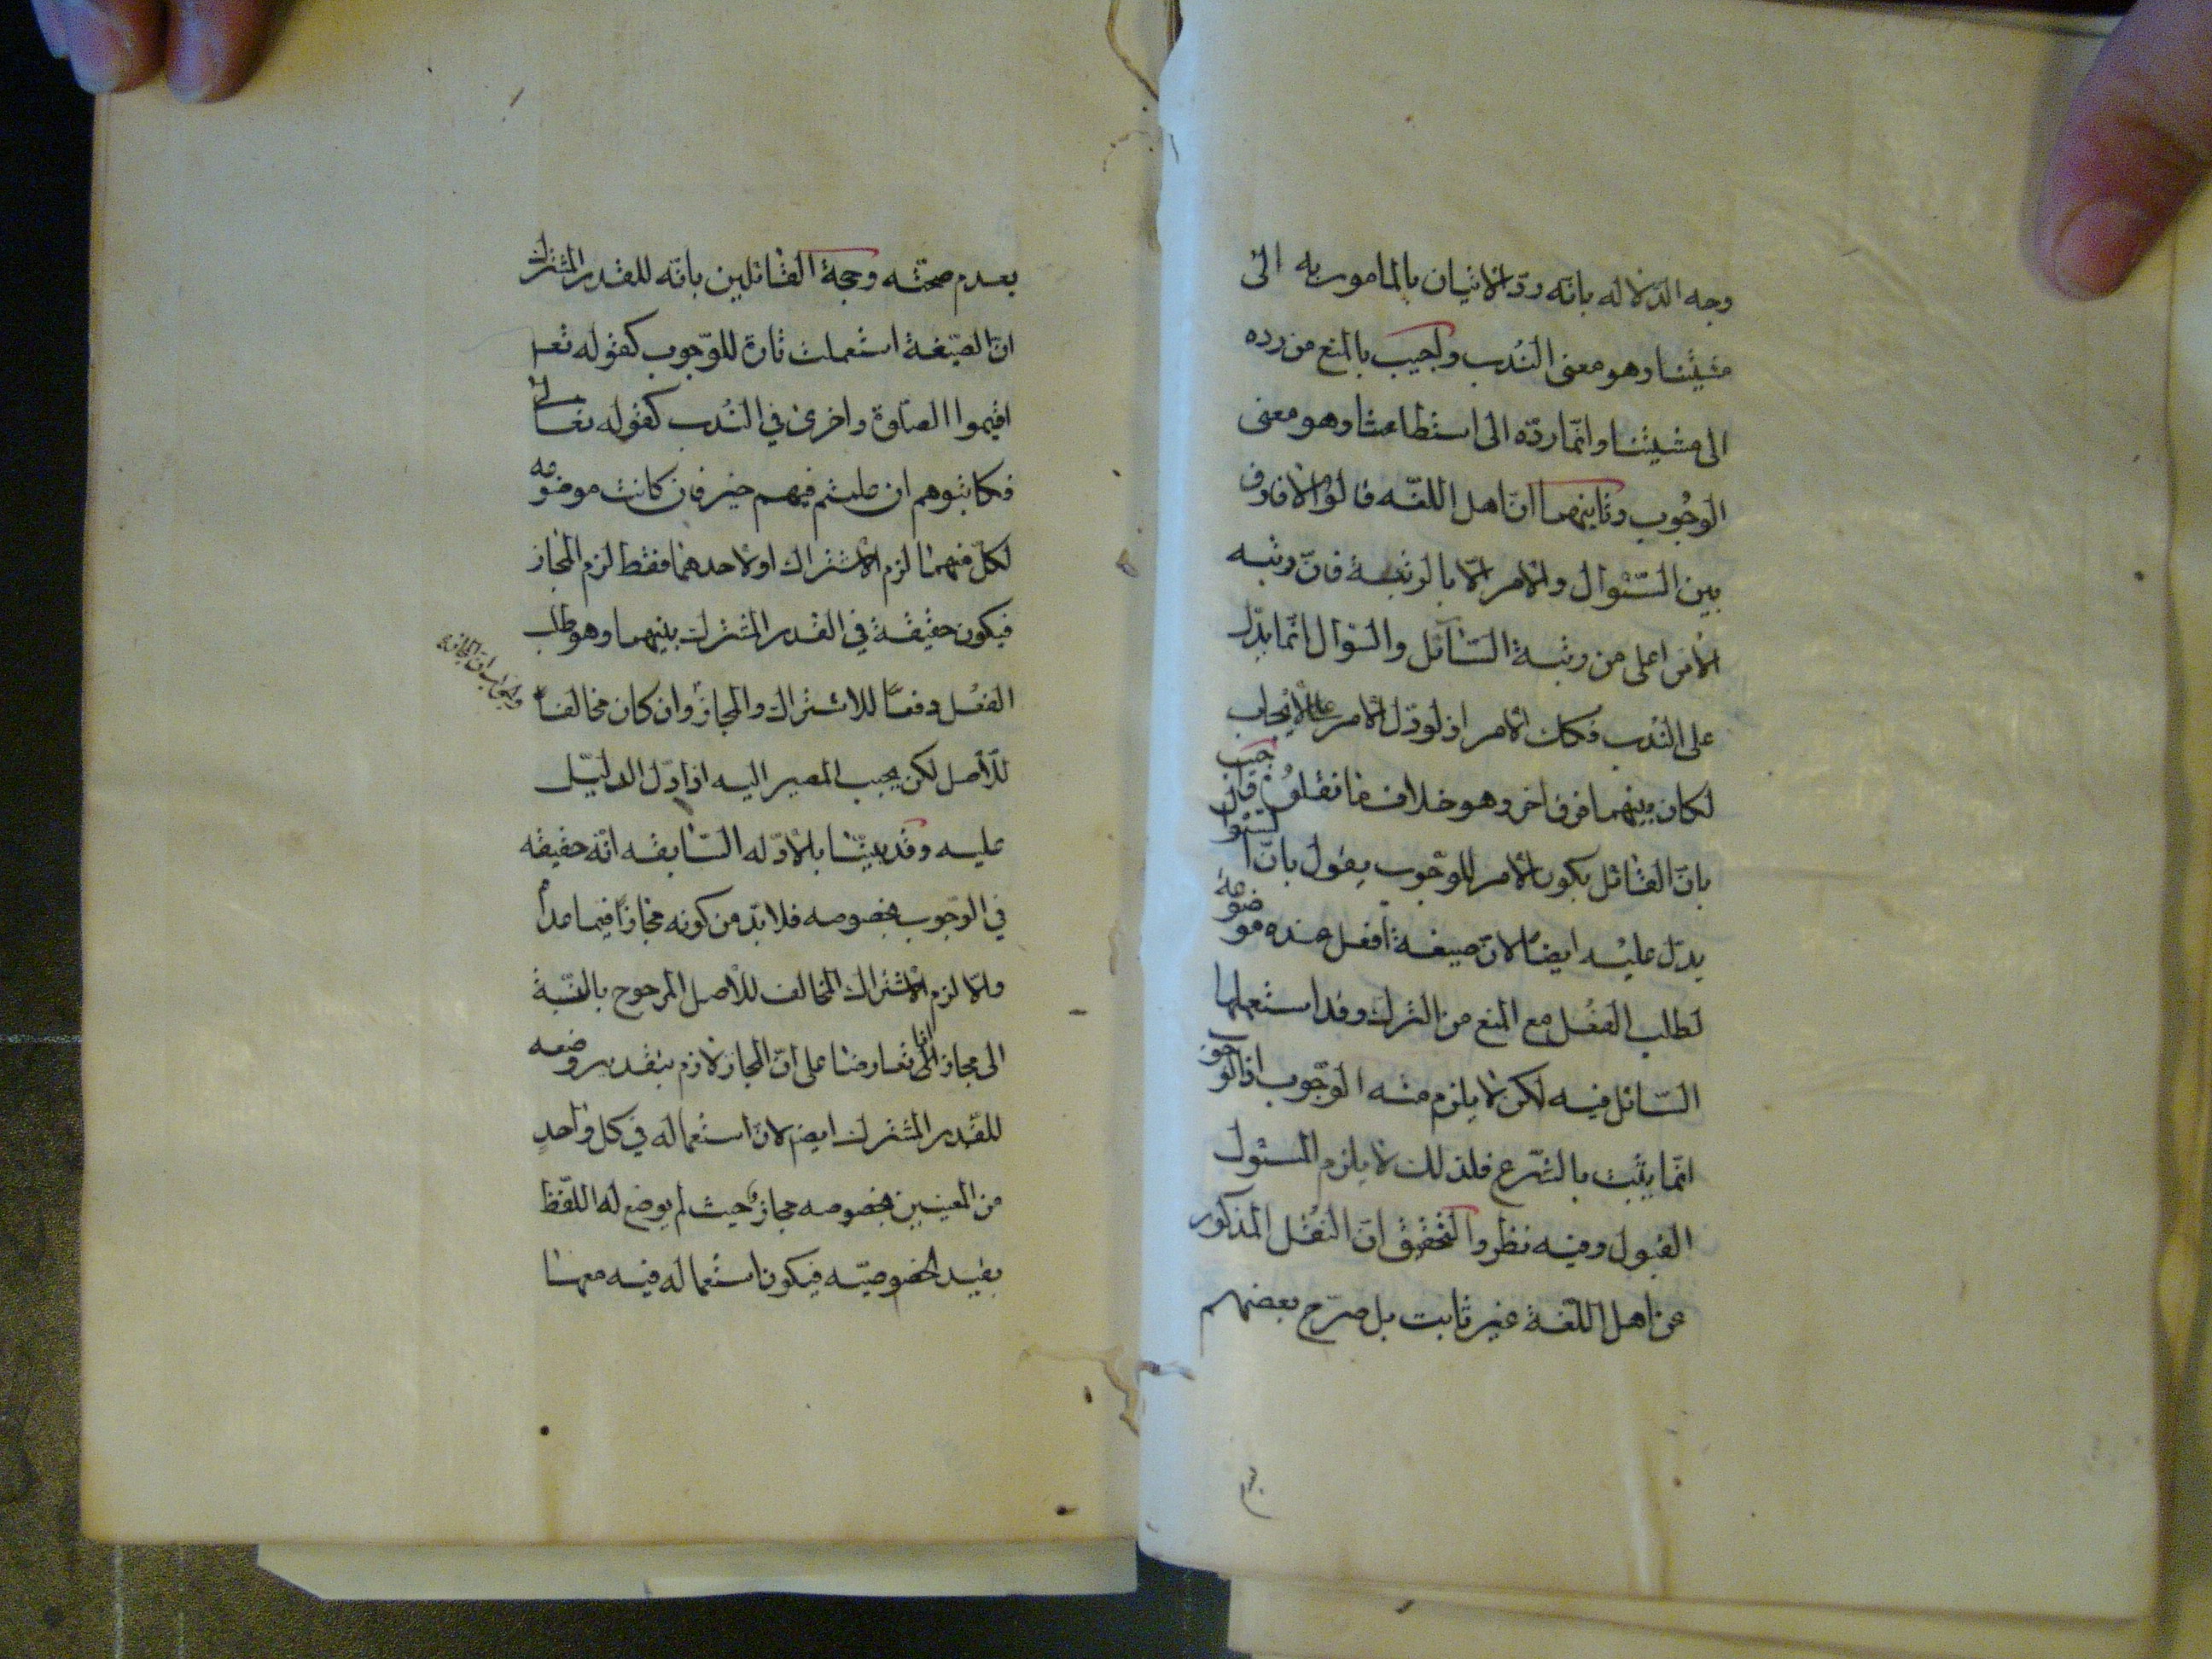 وجه الدلاله بانه ردّ الاتيان بالمامور به الى
مشيتنا وهو معنى الندب واجيب بالمنع من رده
الى مشيتنا وانما ردّه الى استطاعتنا وهو معنى
الوجوب وثانيهما انّ اهل اللغة قالوا لا فارق
بين السئوال والامر الا بالرتبة فانّ رتبه
الامر اعلى من رتبة السائل والسؤال انما يدل
على الندب فكك الامر اذ لو دل الامر على الايجاب
لكان بينهما فرق اخر وهو خلاف ما نقلوه واجيب
بانّ القائل بكون الامر للوجوب يقول بانّ السئوال
يدل عليه ايضا لان صيغة افعل عنده موضوعة
لطلب الفعل مع المنع من الترك وقد استعملها
السائل فيه لكن لا يلزم منه الوجوب اذ الوجوب
انما يثبت بالشرع فلذلك لا يلزم المسئول
القبول وفيه نظر والتحقيق انّ النقل المذكور
عن اهل اللغة غير ثابت بل صرّح بعضهم
بعدم صحته وحجة القائلين بانه للقدر المشترك
انّ الصيغة استعملت تارة للوجوب كقوله تعـ
اقيموا الصلوة واخرى في الندب كقوله تعالى
فكاتبوهم ان علمتم فيهم خير فان كانت موضوعه
لكل منهما لزم الاشتراك او لاحدهما فقط لزم المجاز
فيكون حقيقة في القدر المشترك بينهما وهو طلب
الفعل دفعا للاشتراك والمجاز وان كان مخالفا
والجواب ان المجاز
للاصل لكن يجب المصير اليه اذا دل الدليل
عليه وقد بينا بالادله السابقه انه حقيقه
في الوجوب بخصوصه فلا بد من كونه مجازا فيما عداه
والا لزم الاشتراك المخالف للاصل المرجوح بالنسبة
الى مجاز اذا تعارضا على انّ المجاز لازم بتقدير وضعه
للقدر المشترك ايضا لانّ استعماله في كل واحد
من المعنيين بخصوصه مجاز حيث لم يوضع له اللفظ
بقيد الخصوصيه فيكون استعماله فيه معها